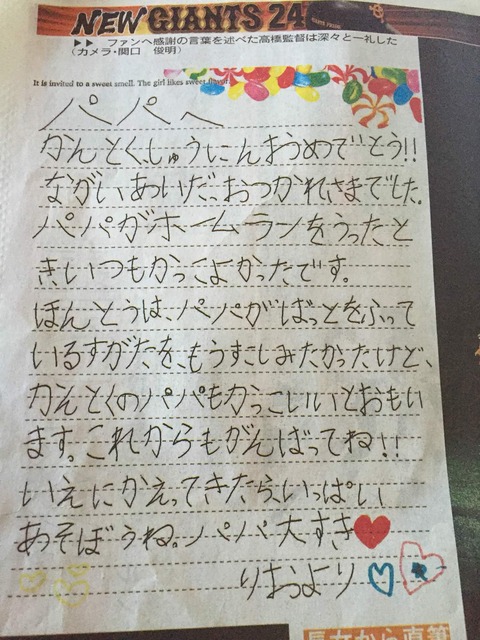 NEW GIANTS 24
▶▶ ファンへ感謝の言葉を述べた高橋監督は深々と一礼した
(カメラ・関口 俊明)
It is invited to a sweet smell. The girl likes sweet flavor
パパへ
かんとく、しゅうにんおめでとう!!
ながいあいだ、おつかれさまでした。
パパがホームランをうったと
き、いつもかっこよかったです。
ほんとうは、パパがばっとをふって
いるすがたを、もうすこしみたかったけど、
かんとくのパパもかっこいいとおもい
ます。これからもがんばってね!!
いえにかえってきたら、いっぱい
あそぼうね。パパ大すき❤
りおより